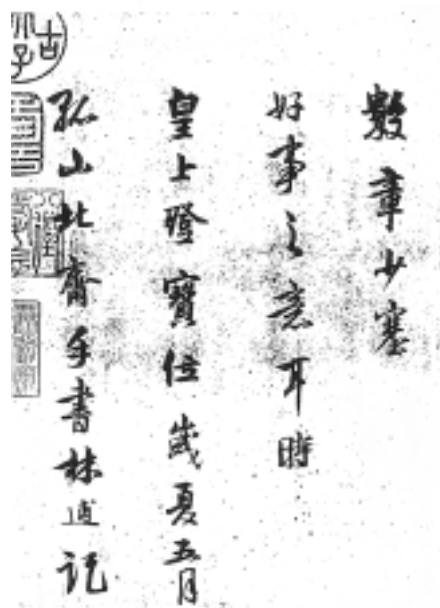 數章少塞
好事之意耳時
皇上登寶位歲夏五月
孤山北齋手書林逋記